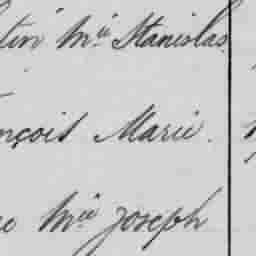 tin Mie Stanislas
nçois Marie.
Mie Joseph